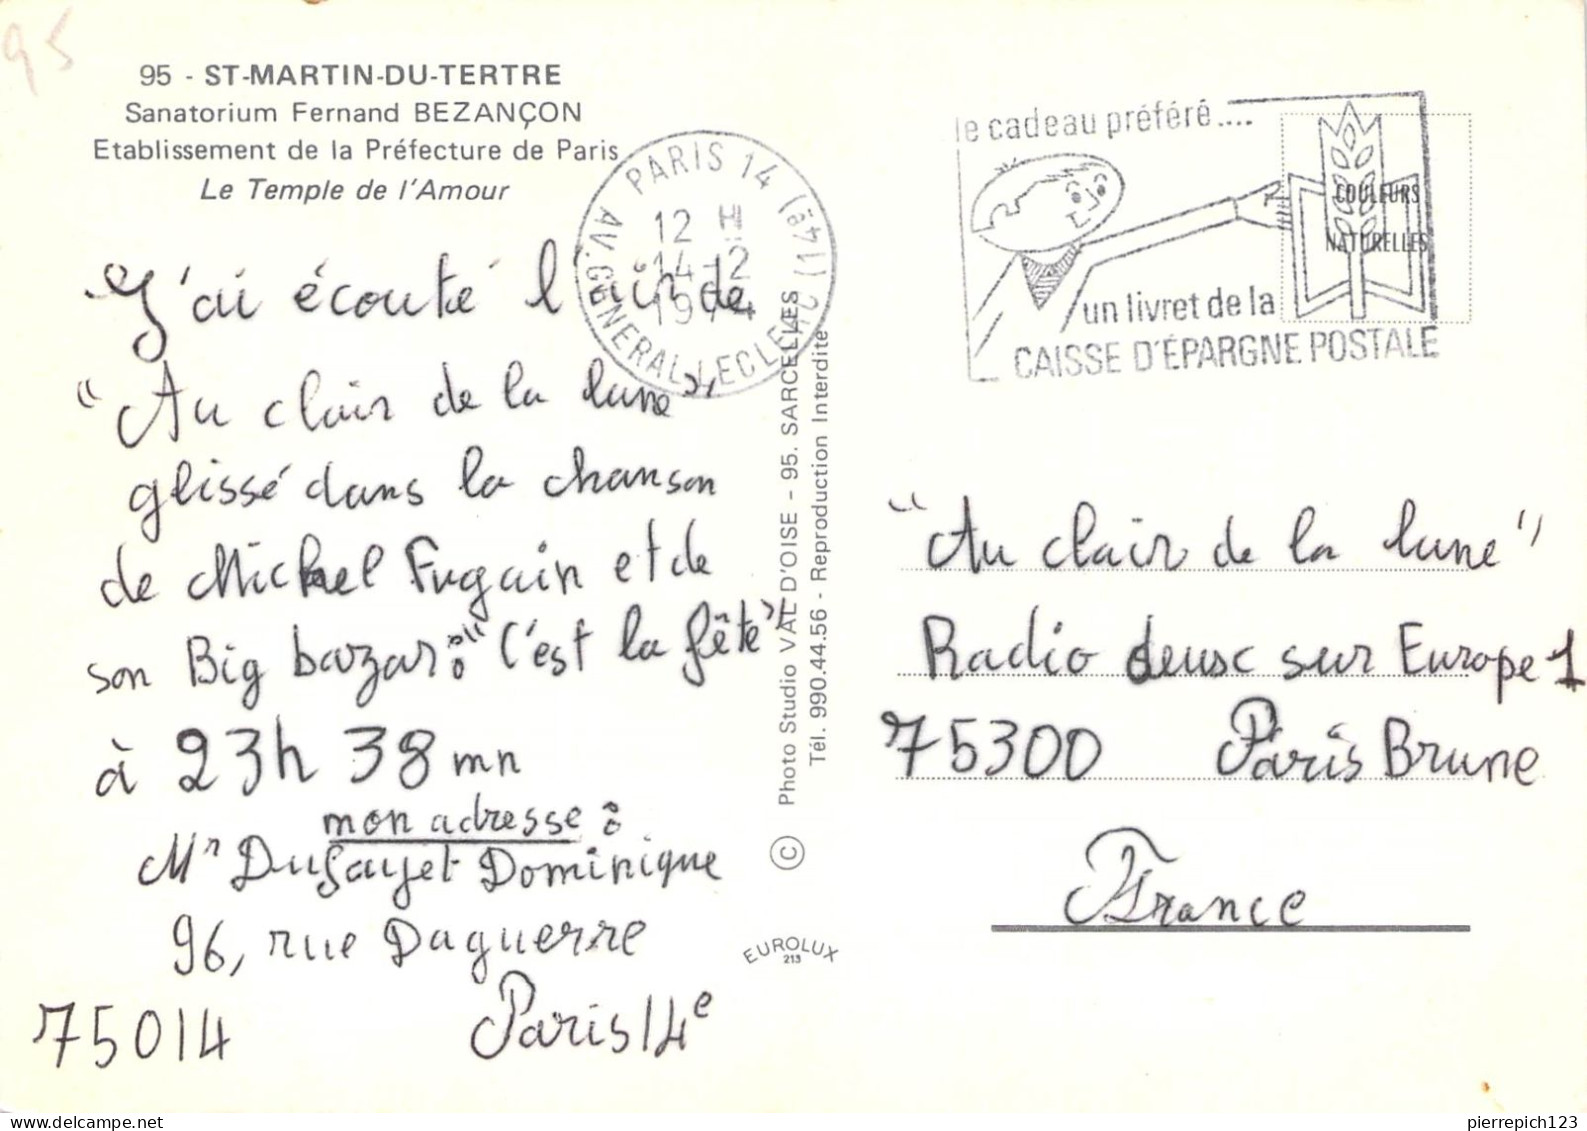 95
95 - ST-MARTIN-DU-TERTRE
Sanatorium Fernand BEZANÇON
Etablissement de la Préfecture de Paris
Le Temple de l'Amour
J'ai écouté l'air de
"Au clair de la lune",
glissé dans la chanson
de Michel Fugain et de
son Big bazar : "C'est la fête"
à 23h 38 mn
mon adresse :
Mr Dufayet Dominique
96, rue Daguerre
75014 Paris 14e
PARIS 14 (14è)
12 H
14-2
1974
AV. GÉNÉRAL LECLERC
Photo Studio VAL D'OISE - 95. SARCELLES
Tél. 990.44.56 - Reproduction Interdite
©
EUROLUX
213
le cadeau préféré....
un livret de la
CAISSE D'ÉPARGNE POSTALE
COULEURS
NATURELLES
"Au clair de la lune"
Radio deusc sur Europe 1
75300 Paris Brune
France
pierrepich123